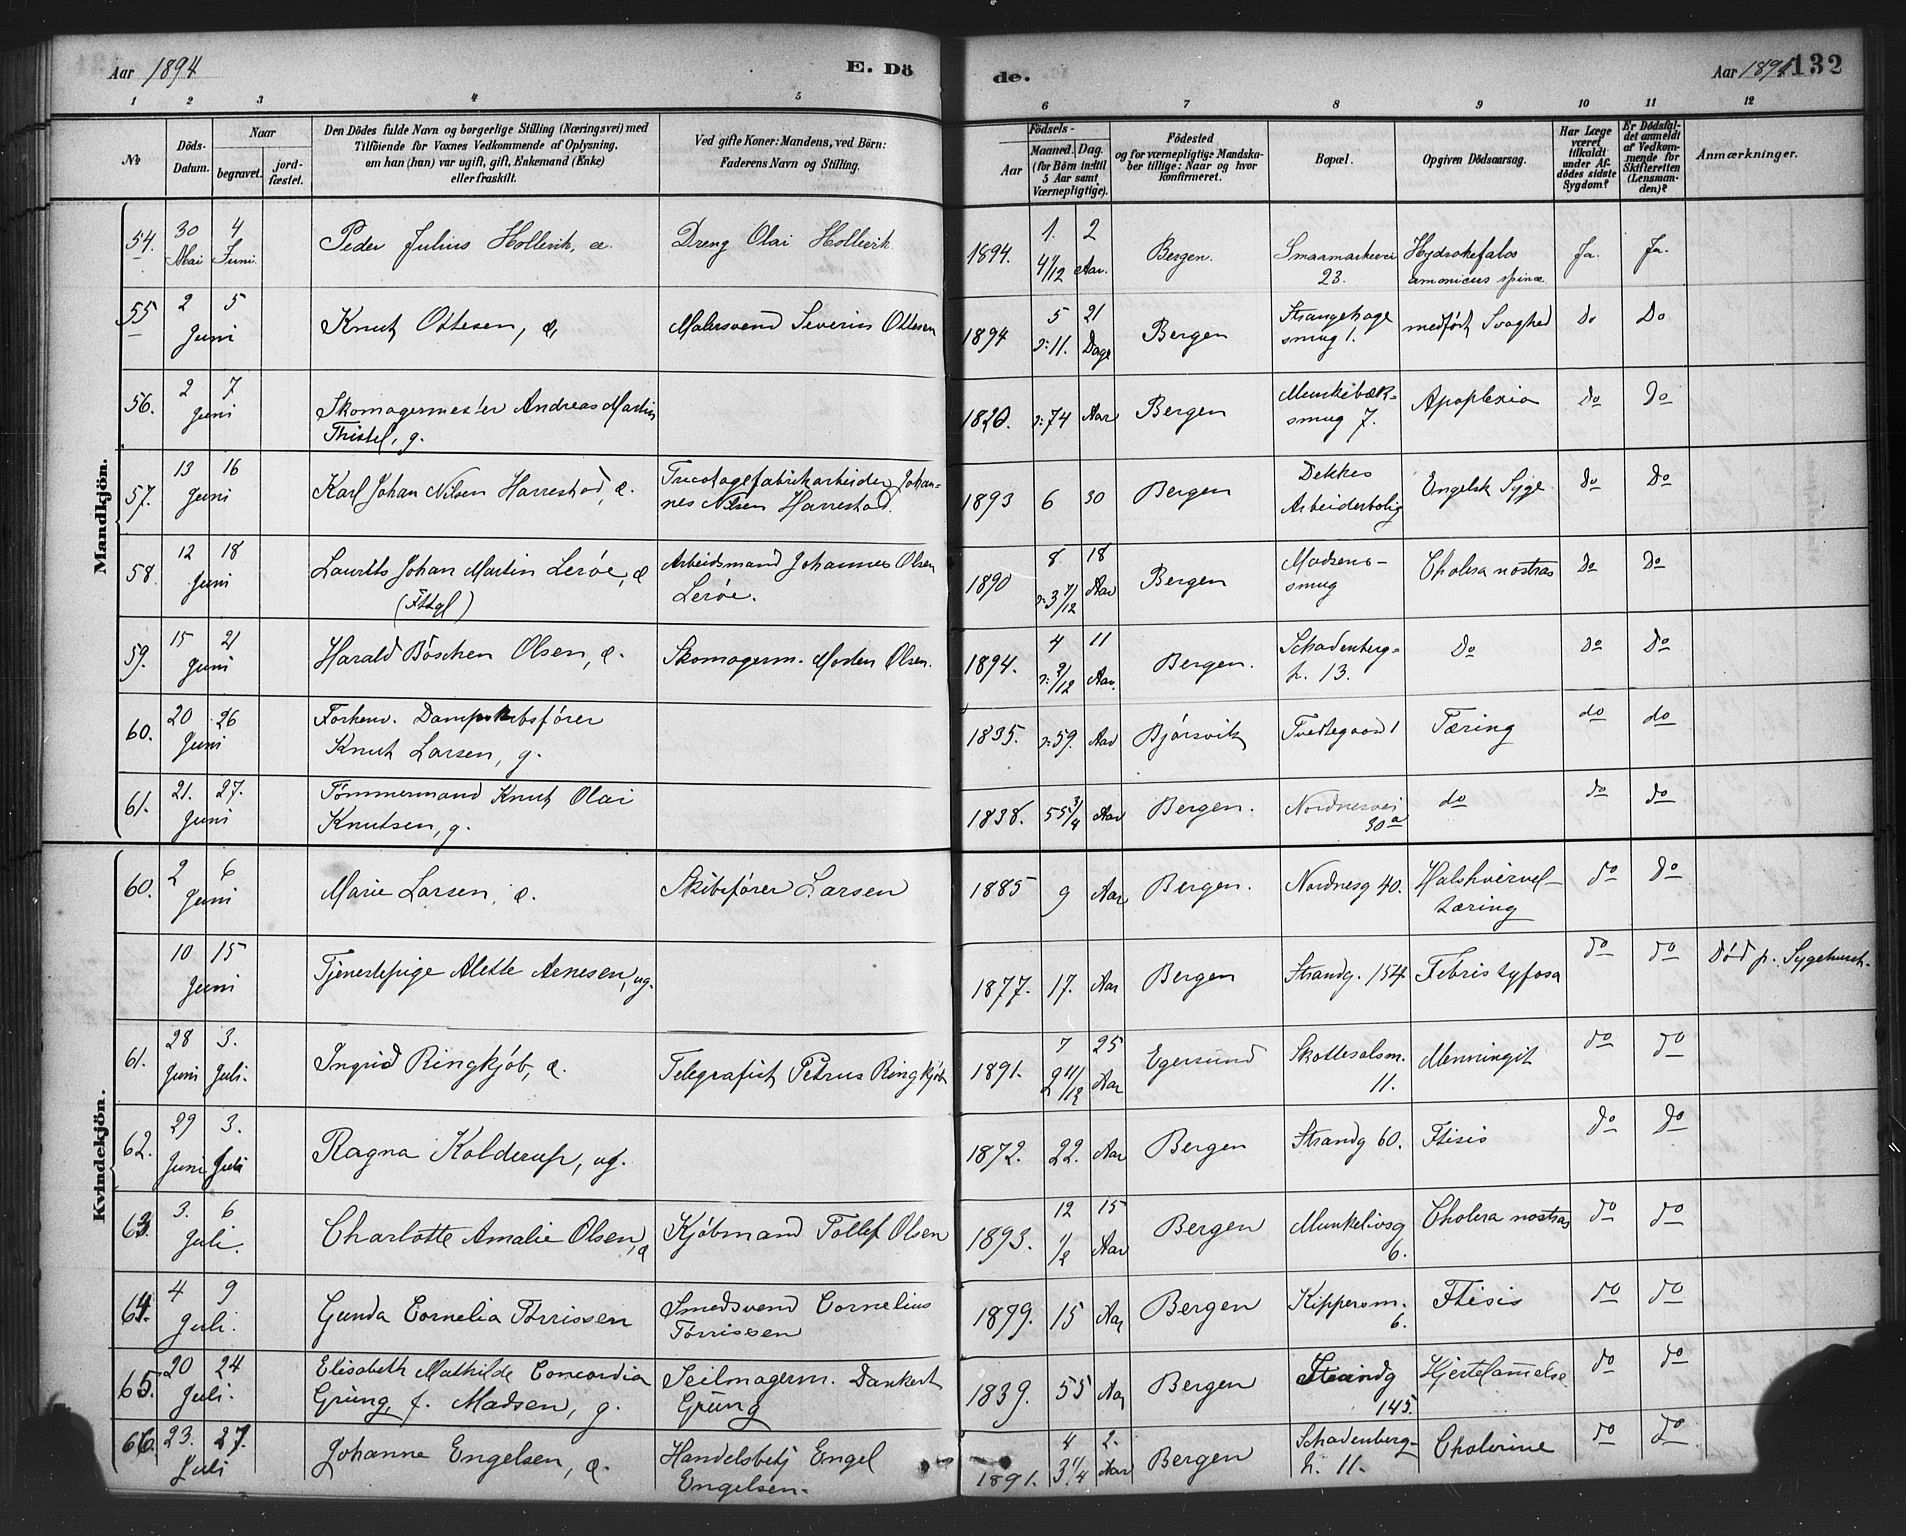 Aar 1894
E. Dö
de.
Aar 1894 132
1 2 3 4 5 6 7 8 9 10 11 12
No
Döds-Datum.
Naar
begravet. jord-fæstet.
Den Dödes fulde Navn og borgerlige Stilling (Næringsvei) med
Tilföiende for Voxnes Vedkommende af Oplysning,
om han (hun) var ugift, gift, Enkemand (Enke)
eller fraskilt.
Ved gifte Koner: Mandens, ved Börn:
Faderens Navn og Stilling.
Födsels-
Aar
Maaned. Dag.
(for Börn indtil
5 Aar samt
Værnepligtige).
Födested
og for værnepligtige Mandska-
ber tillige: Naar og hvor
konfirmeret.
Bopæl.
Opgiven Dödsaarsag.
Har Læge
været
tilkaldt
under Af-
dödes sidste
Sygdom?
Er Dödsfal-
det anmeldt
af Vedkom-
mende for
Skifteretten
(Lensman-
den)?
Anmærkninger.
Mandkjön.
54. 30 Mai 4 Juni. Peder Julius Hollevik, æ. Dreng Olai Hollevik 1894. 1. 2 4/12 Aar. Bergen. Smaamarkevei 23. Hydrokefalos spinæ Ja. Ja.
55 2 5 Juni Knut Ottesen, æ Malersvend Severin Ottesen 1894 5 21 ɔ: 11. Dage Bergen Strangehage smug 1. medfødt Svaghed Do Do
56. 2 7 Juni Skomagermester Andreas Martin Thistel, g. 1820. ɔ: 74 Aar Bergen Munkebæk-smug 7. Apoplexia Do Do
57. 13 16 Juni Karl Johan Nilsen Harrestad, æ. Tricotagefabrikarbeider Johan-nes Nilsen Harrestad. 1893 6 30 Bergen Dekkes Arbeiderbolig Engelsk Syge Do Do
58. 12 18 Juni Laurits Johan Martin Lerøe, æ Arbeidsmand Johannes Olsen Lerøe. 1890 8 18 Aar Bergen Madsens-smug Cholera nostras Do Do
59. 15 21 Juni Harald Böschen Olsen, æ. Skomagerm. Morten Olsen. 1894. 4 11 ɔ: 2/12 Aar. Bergen. Schadenberg-h. 13. Do Do Do
60. 20 26 Juni Forhenv. Dampskibsfører Knut Larsen, g. 1835. ɔ: 59. Aar Bjørsvik Tveitegaard 1 Tæring do do
61. 21. 27. Juni Tömmermand Knut Olai Knutsen, g. 1838. 55 3/4 Aar Bergen. Nordnesvei 30a do do do
Kvindekjön.
60. 2 6 Juni Marie Larsen, æ. Skibsfører Larsen 1885 9 Aar Bergen. Nordnesg 40. Halshvirvel-tæring do do
10 15 Juni Tjenestepige Alette Arnesen, ug. 1877. 17. Aar Bergen Strandg. 154 Febris tyfosa do do Død p. Sygehuset.
61. 28 Juni 3. Juli. Ingrid Ringkjøb, æ. Telegrafist Petrus Ringkjøb 1891. 7 25 2 11/12 Aar Egersund Skottesalsm. 11. Menningit do do
62. 29 Juni 3. Juli Ragna Kolderup, ug. 1872. 22. Aar Bergen Strandg 60. Ftisis do do
63. 3. 6 Juli. Charlotte Amalie Olsen, æ Kjøbmand Tollef Olsen 1893. 12 15 1/2 Aar Bergen Munkelivsg 6. Cholera nostras do do
64. 4 9 Juli. Gunda Cornelia Tørrissen Smedsvend Cornelius Tørrissen 1879. 15 Aar Bergen Kippersm. 6. Ftisis do do
65. 20 24 Juli. Elisabeth Mathilde Concordia Grüng, f. Madsen, g. Seilmagerm. Dankert Grüng 1839. 55 Aar Bergen Strandg 145. Hjertelammelse do do
66. 23. 27. Juli Johanne Engelsen, æ. Handelsbetj Engel Engelsen. 1891. 4 2. 3 1/4 Aar Bergen Schadenberg-h. 11. Cholerine do do